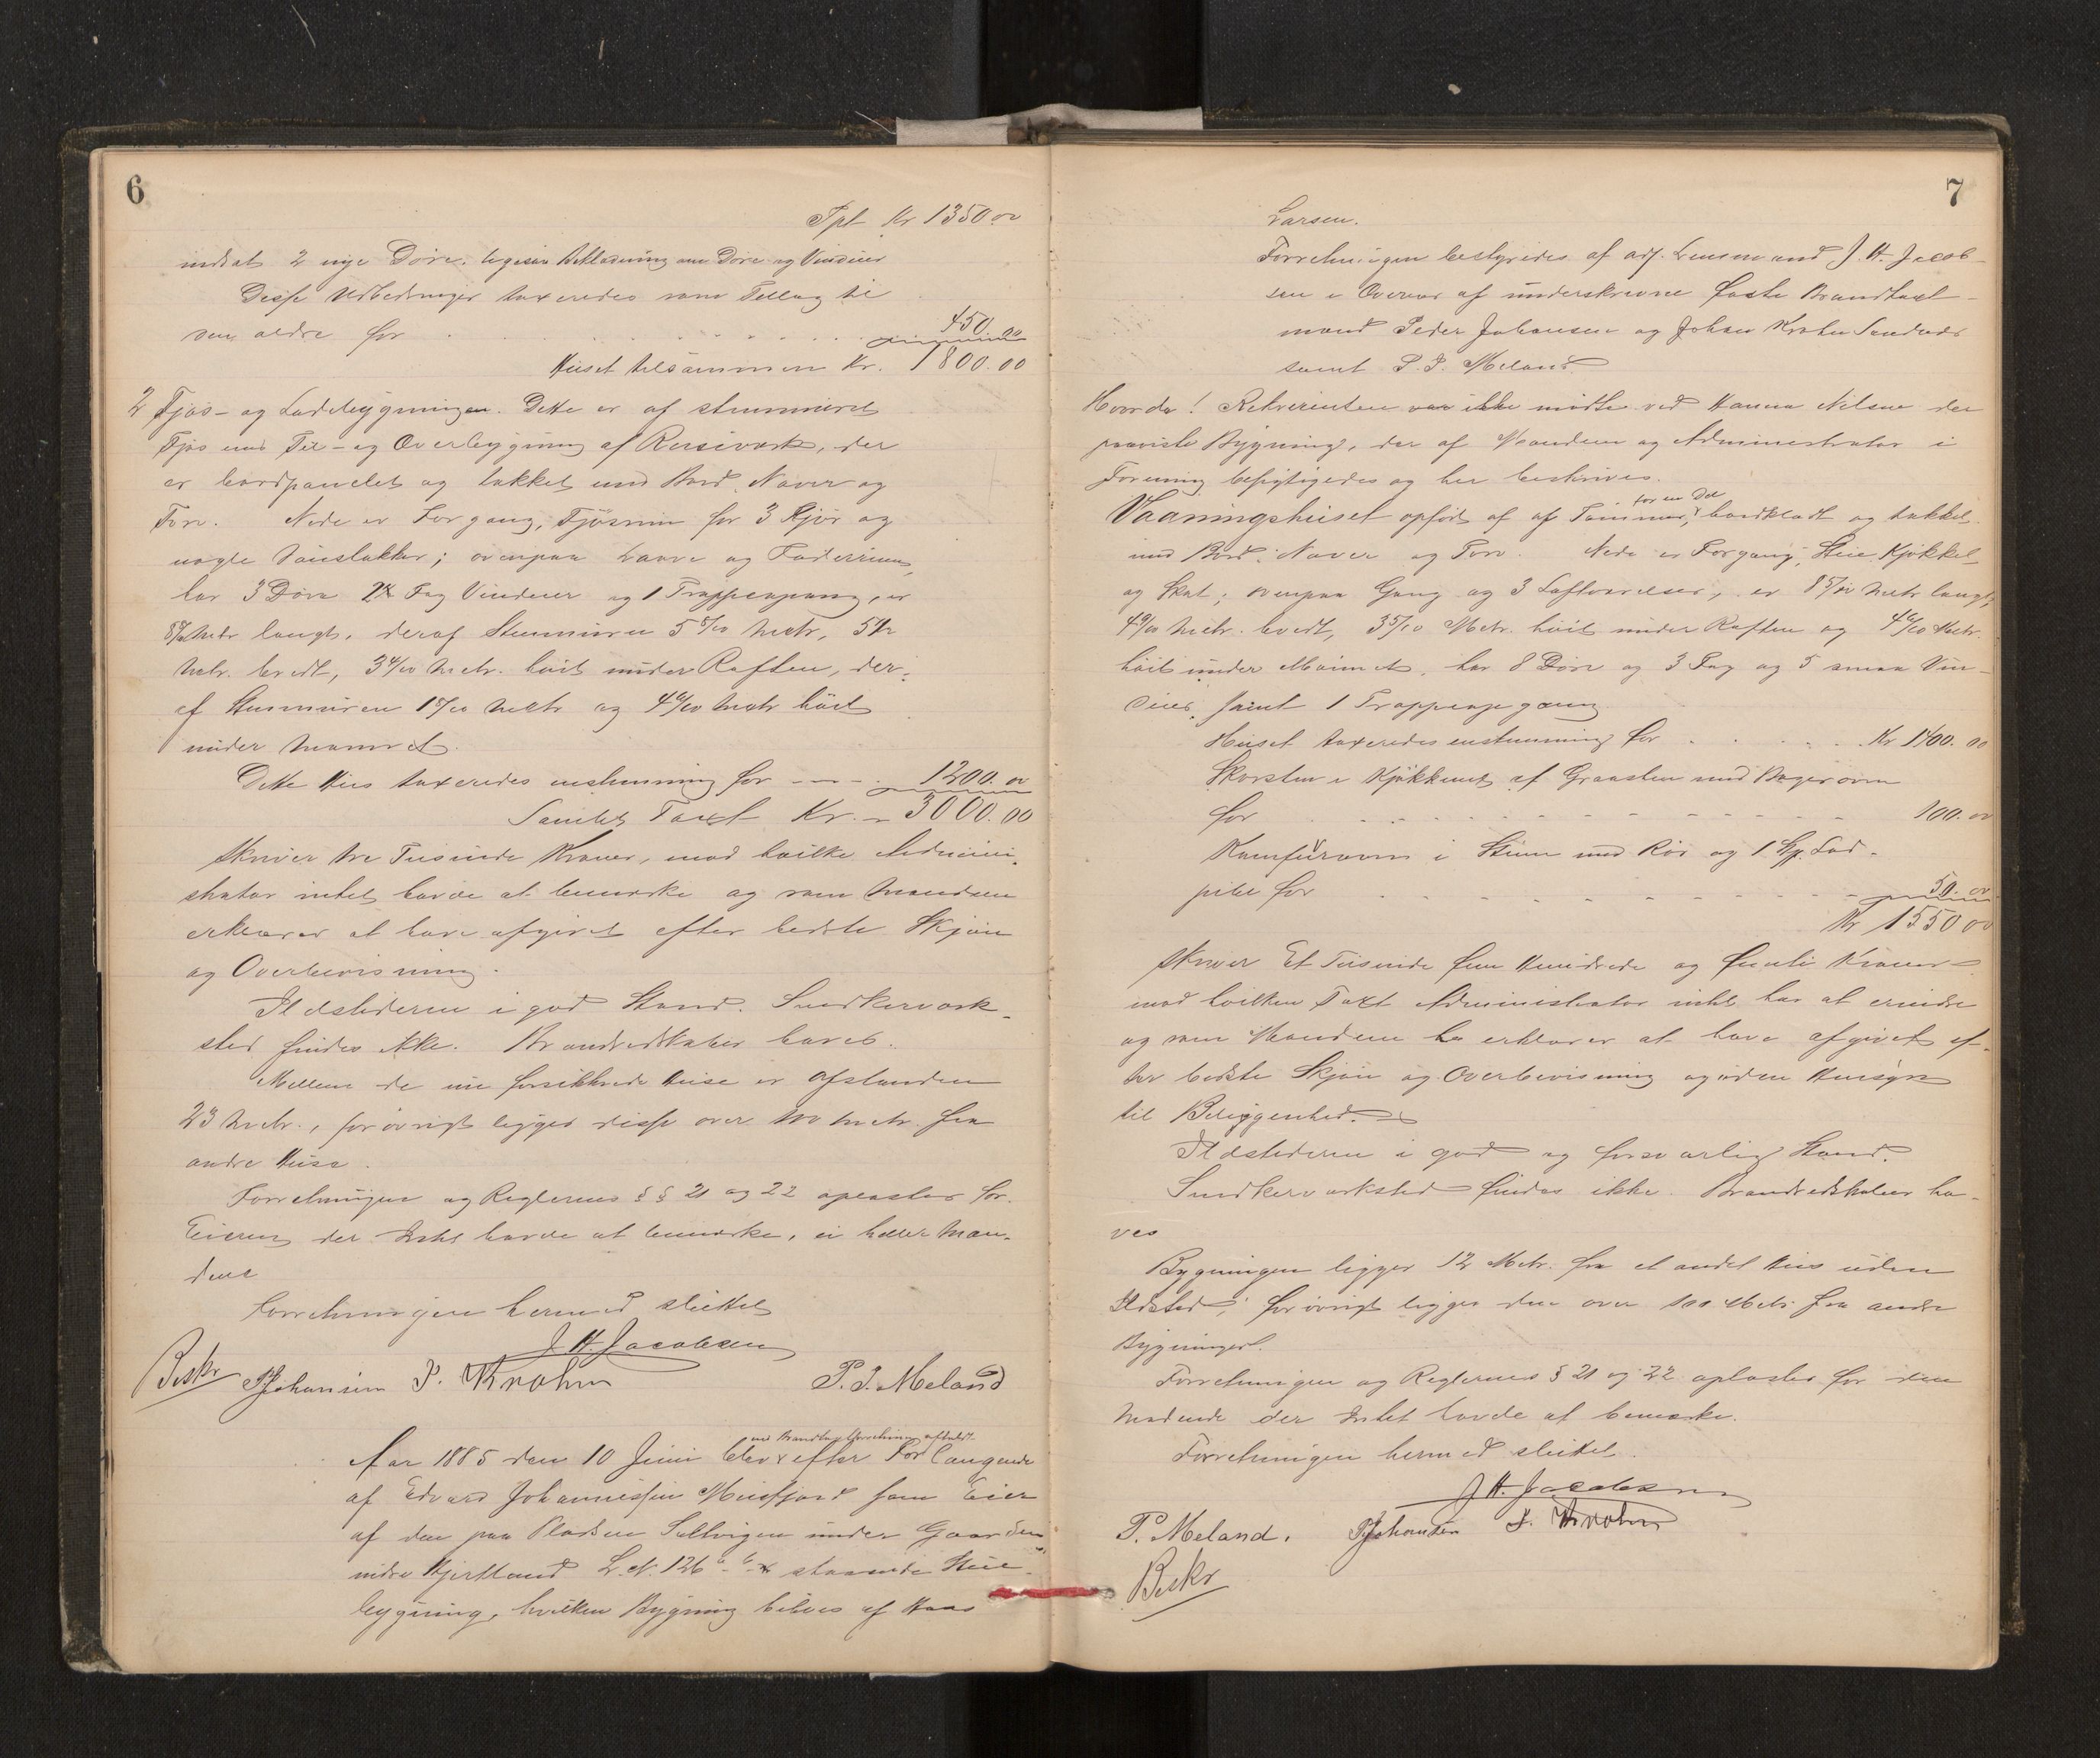 6
Tpt Kr 1350.00
indsat 2 nye Döre. ligesaa Beklædning om Döre og Vinduer
Disse Udbedringer taxeredes som Tillæg til
den ældre for . . . . . . . . . 450.00
Huset tilsammen Kr. 1800.00
2 Fjös- og Ladebygningen. Dette er af stenmuret
Fjös med Til- og Overbygning af Reisværk, der
er bordpanelet og tækket med Bord, Næver og
Torv. Nede er Forgang, Fjösrum for 3 Kjör og
nogle Sauer; ovenpaa Laave og Foderrum,
har 3 Döre 2 Fag Vinduer og 1 Trappeopgang, er
Metr langt, deraf Stenmuren 5 5/10 Metr, 5
Metr. bredt, 3 4/10 Metr. höit under Raften, der-
af Stenmuren 1 5/10 Metr og 4 6/10 Metr höit
under Mönnet.
Dette Hus taxeredes enstemmig for — — . 1200.00
Samlet Taxt Kr. — 3000.00
skriver tre Tusinde Kroner, mod hvilke Admini-
strator intet havde at bemærke og som Mændene
erklærer at have afgivet efter bedste Skjön
og Overbevisning.
Ildstederne i god Stand. Snedkerværk-
sted findes ikke. Brandredskaber haves.
Mellem de nu forsikkrede Huse er Afstanden
23 Metr., forövrigt ligger disse over 100 Metr. fra
andre Huse.
Forretningen og Reglernes § § 21 og 22 oplæstes for
Eieren der Intet havde at bemærke, ei heller Mæn-
dene
Forretningen hermed sluttet
J H. Jacobsen
Beskr PJohansen J. Krohn P. J. Meland
en Brandtaxtforretning afholdt
Aar 1885 den 10 Juni blev x efter Forlangende
af Edvard Johannessen Misfjord som Eier
af den paa Pladsen Selvigen under Gaarden
indre Hjertland L. N. 126 a b x staaende Stue-
bygning, hvilken Bygning beboes af Hans
7
Larsen.
Forretningen bestyredes af adj. Lensmand J. H. Jacob-
sen i Overvær af underskrevne faste Brandtaxt-
mænd Peder Johansen og Johan Krohn
samt P. J. Meland.
Hvorda! Rekvirenten var ikke mödte ved Hanna Nilsen der
paaviste Bygning, der af Mændene og Administrator i
Forening besigtigedes og her beskrives.
for en Del
Vaaningshuset opfört af af Tömmer, x bordklædt og tækket
med Bord, Næver og Torv. Nede er Forgang, Stue, Kjökken
og Skot; ovenpaa Gang og 3 Loftværelser, er 8 5/10 Metr langt,
4 9/10 Metr. bredt, 3 5/10 Metr. höit under Raften og 4 6/10 Metr.
höit under Mönnet, har 8 Döre og 3 Fag og 5 smaa Vin-
duer, samt 1 Trappeopgang
Huset taxeredes enstemmig for . . . . . Kr 1400.00
Skorsten i Kjökkenet af Graasten med Bagerovn
for . . . . . . . . . . . . . 100.00
Komfurovn i Stuen med Rör og
for . . . . . . . . . . 50.00
Kr 1550.00
skriver Et Tusinde fem Hundrede og femti Kroner
mod hvilken Taxt Administrator intet har at erindre
og som Mændene ha erklærer at have afgivet ef-
ter bedste Skjön og Overbevisning og uden Hensyn
til Beliggenhed.
Ildstederne i god og forsvarlig Stand.
Snedkerværksted findes ikke. Brandredskaber ha-
ves
Bygningen ligger 12 Metr. fra et andet Hus uden
Ildsted; forövrigt ligger den over 100 Metr fra andre
Bygninger.
Forretningen og Reglernes § 21 og 22 oplæstes for den
Mödende der Intet havde at bemærke.
Forretningen hermed sluttet.
J H. Jacobsen
P. Meland. PJohansen J. Krohn
Beskr